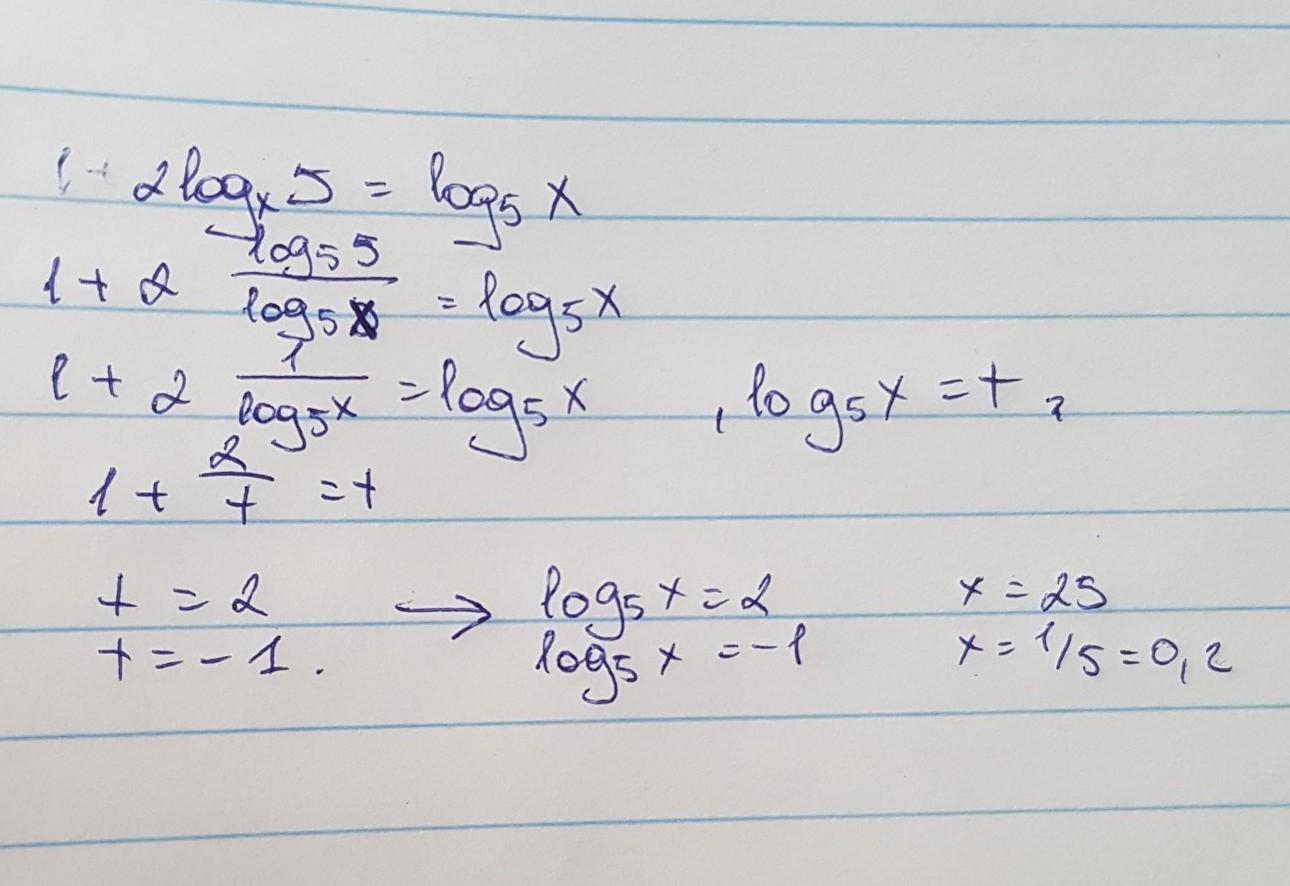 1 + 2 log_x 5 = log_5 x
1 + 2 (log_5 5)/(log_5 x) = log_5 x
1 + 2 1/(log_5 x) = log_5 x , log_5 x = t,
1 + 2/t = t
t = 2 → log_5 x = 2 x = 25
t = -1. log_5 x = -1 x = 1/5 = 0,2